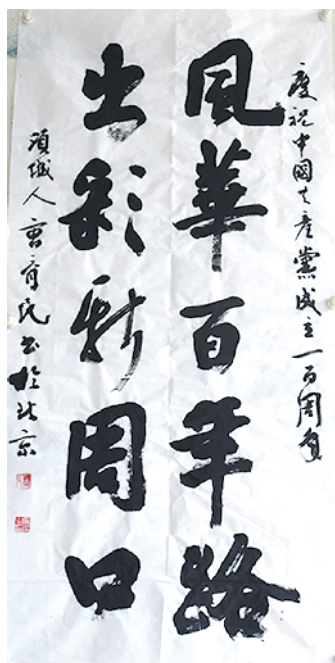 慶祝中國共產黨成立一百周年
風華百年路
出彩新周口
項城人曹育民书於北京